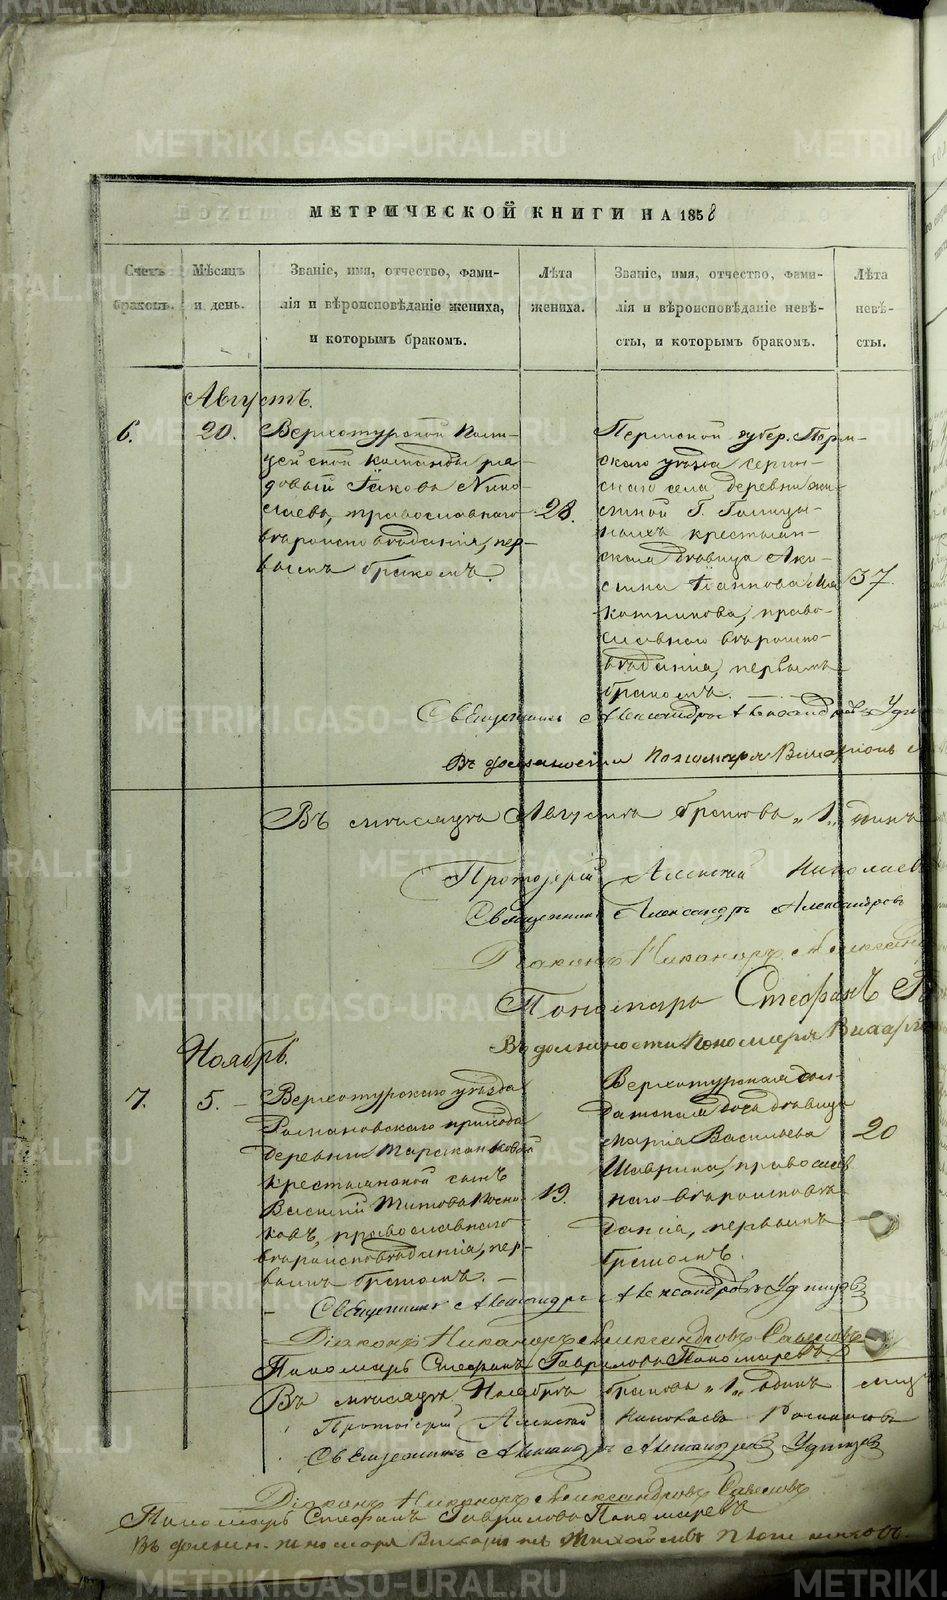 МЕТРИЧЕСКОЙ КНИГИ НА 1858
Счетъ браковъ.
Мѣсяцъ и день.
Званіе, имя, отчество, фами-
лія и вѣроисповѣданіе жениха,
и которымъ бракомъ.
Лѣта
жениха.
Званіе, имя, отчество, фами-
лія и вѣроисповѣданіе невѣ-
сты, и которымъ бракомъ.
Лѣта
невѣ-
сты.
Августъ.
6.
20.
Верхотурской Поли-
цейской команды ря-
довый Іаковъ Нико-
лаевъ, православнаго
вѣроисповѣданія, пер-
вымъ бракомъ.
28.
Пермской губер. Перм-
скаго уѣзда серги-
скаго села деревни
Г. Голицы-
ныхъ крестьян-
ская дѣвица Аки-
лина Іаннова
православнаго вѣроиспо-
вѣданія, первымъ
бракомъ.
37.
Священникъ Александръ Александровъ
Въ должности Пономаря Виларионъ
Въ мѣсяцѣ Августѣ браковъ „1„ одинъ
Протоіерей Алексей Николаевъ
Священникъ Александръ Александровъ
Діаконъ Никаноръ
Пономарь Стефанъ
Въ должности Пономаря
Ноябрь.
7.
5.
Верхотурскаго уѣзда
Романовскаго прихода
деревни Тараканковой
крестьянской сынъ
Василій Титовъ
православнаго
вѣроисповѣданія, пер-
вымъ бракомъ.
19.
Верхотурская сол-
датская дочь дѣвица
Марія Васильева
Шаврина, православ
наго вѣроисповѣ-
данія, первымъ
бракомъ.
20
Священникъ Александръ Александровъ Удинцовъ
Діаконъ Никаноръ Александровъ
Пономарь Стефанъ Гавриловъ Пономаревъ
Въ мѣсяцѣ Ноябрѣ браковъ „1„ одинъ
Протоіерей Алексей Николаевъ Романовъ
Священникъ Александръ Александровъ Удинцовъ
Діаконъ Никаноръ Александровъ
Пономарь Стефанъ Гавриловъ Пономаревъ
Въ должн. пономаря
METRIKI.GASO-URAL.RU